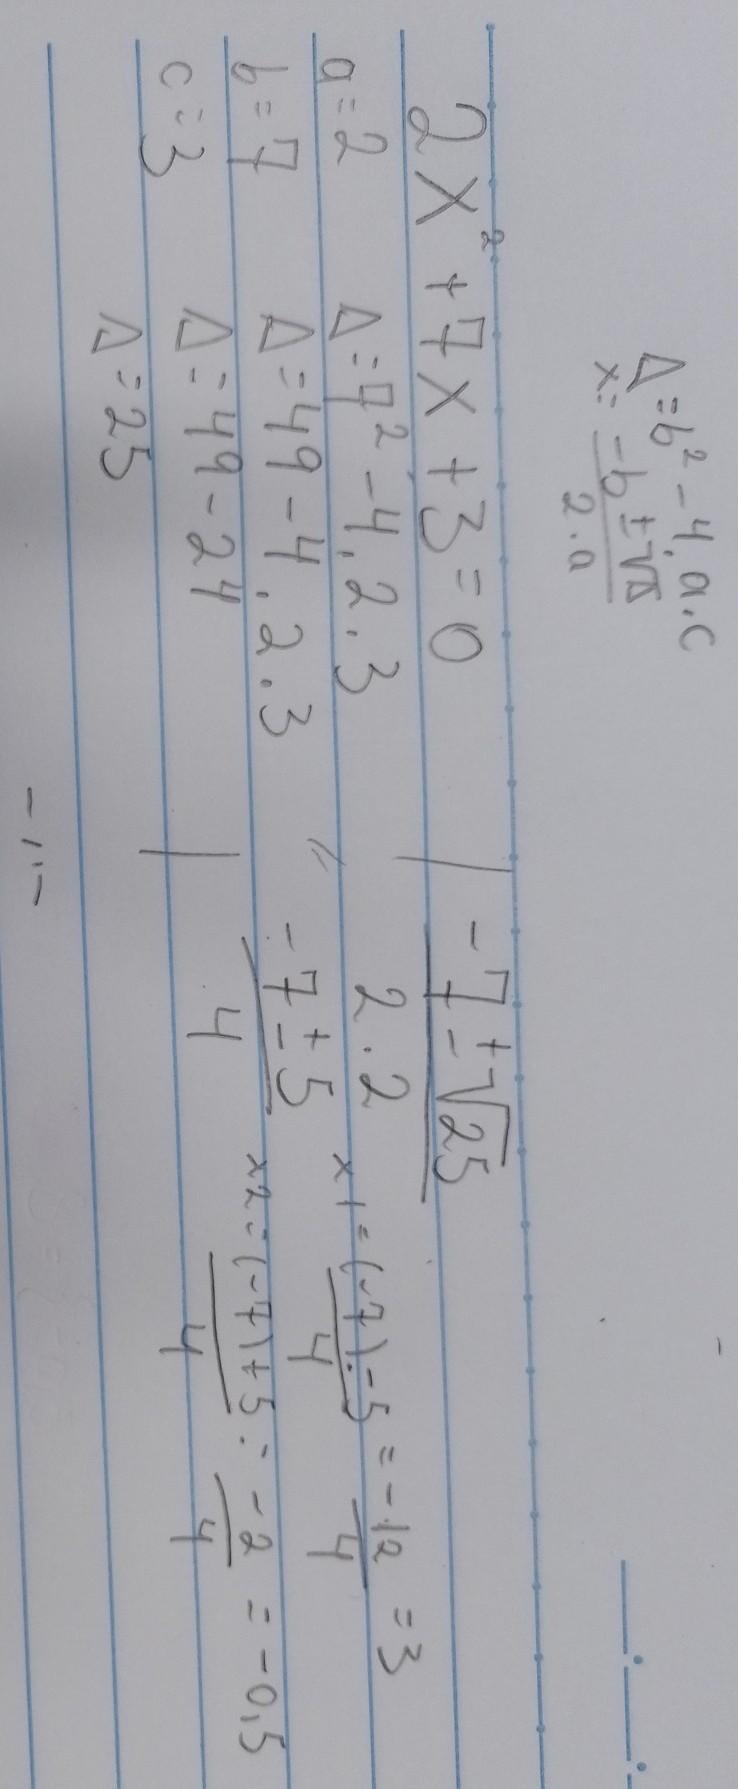 Δ=b²-4.a.c
x= -b±√Δ
2.a
2x²+7x+3=0
a=2
b=7
c=3
Δ=7²-4.2.3
Δ=49-4.2.3
Δ=49-24
Δ=25
-7±√25
2.2
-7±5
4
x1=(-7)-5 = -12 = 3
4 4
x2=(-7)+5 = -2 = -0,5
4 4